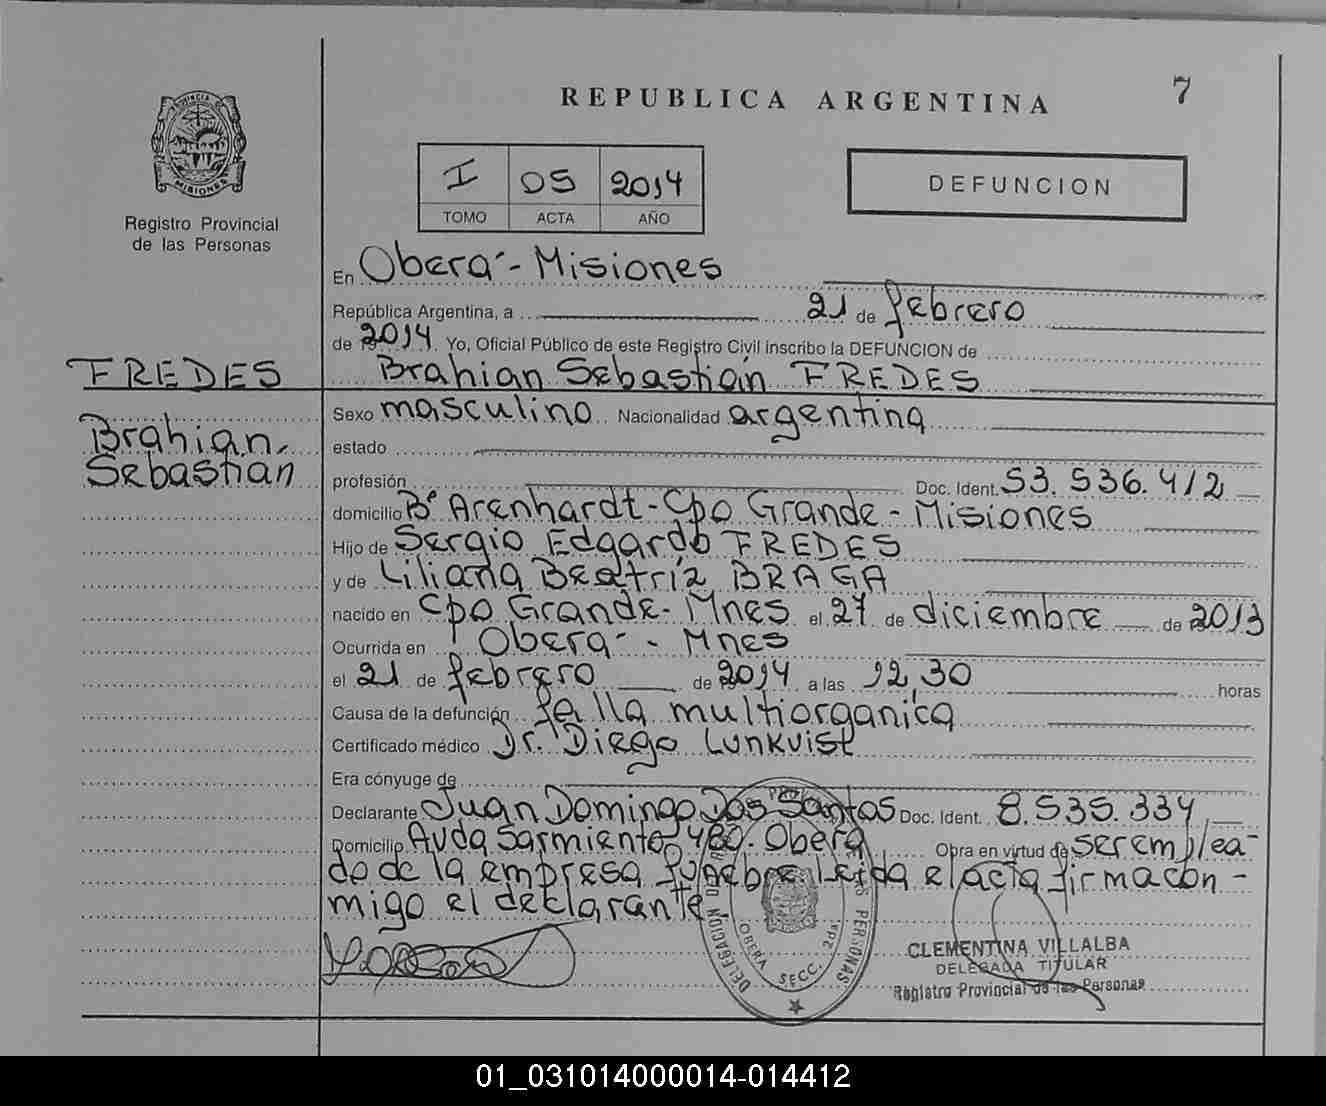 7
REPUBLICA ARGENTINA
PROVINCIA DE
MISIONES
Registro Provincial
de las Personas
I 05 2014
TOMO ACTA AÑO
DEFUNCION
En Oberá - Misiones
República Argentina, a 21 de febrero
de 2014. Yo, Oficial Público de este Registro Civil inscribo la DEFUNCION de
FREDES
Brahian Sebastián FREDES
Brahian,
Sebastián
Sexo masculino Nacionalidad argentina
estado
profesión Doc. Ident. 53.536.412
domicilio Bº Arenhardt - Cpo Grande - Misiones
Hijo de Sergio Edgardo FREDES
y de Liliana Beatríz BRAGA
nacido en Cpo Grande - Mnes el 27 de diciembre de 2013
Ocurrida en Oberá - Mnes
el 21 de febrero de 2014 a las 12,30 horas
Causa de la defunción falla multiorganica
Certificado médico Dr. Diego Lunkvist
Era cónyuge de
Declarante Juan Domingo Dos Santos Doc. Ident. 8.535.334
Domicilio Avda Sarmiento 480. Oberá Obra en virtud de ser emplea-
do de la empresa fúnebre leida el acta firma con-
migo el declarante
DELEGACION DE LAS PERSONAS
OBERA SECC. 2da
CLEMENTINA VILLALBA
DELEGADA TITULAR
Registro Provincial de las Personas
01_031014000014-014412